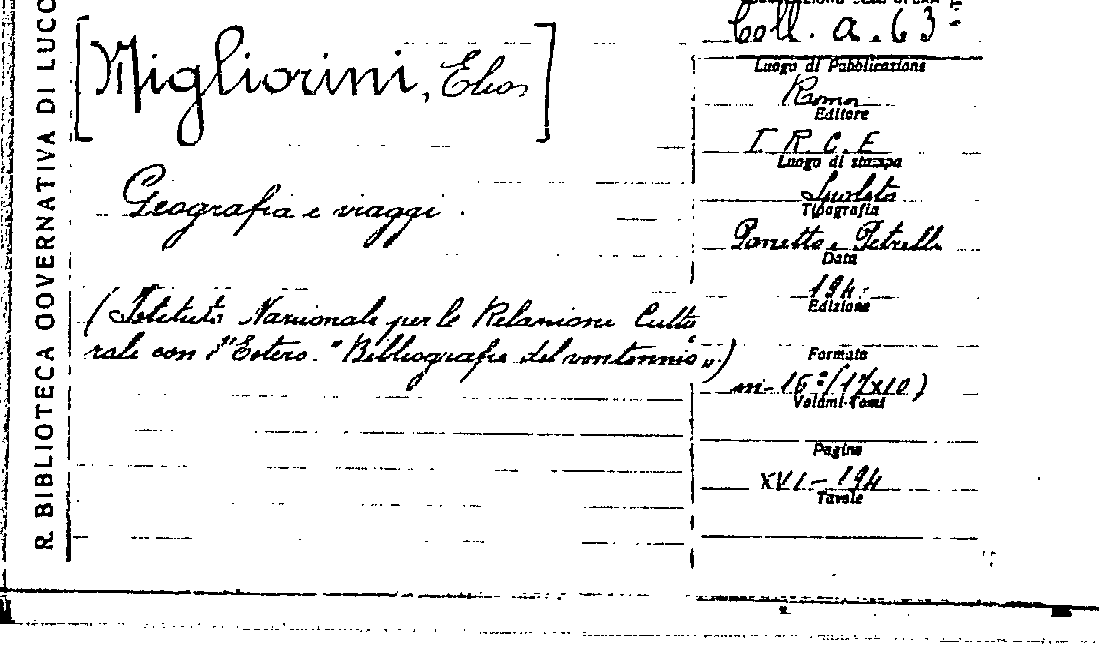 R. BIBLIOTECA GOVERNATIVA DI LUCC
[Migliorini, Elio]
Geografia e viaggi.
(Istituto Nazionale per le Relazioni Cultu
rale con l'Estero. "Bibliografie del ventennio")
Coll. a. 63
Luogo di Pubblicazione
Roma
Editore
I R. C. E
Luogo di stampa
Spoleto
Tipografia
Panetto e Petrelli
Data
194
Edizione
Formato
in-16° (17x10)
Volumi-Tomi
Pagine
XVI-194
Tavole